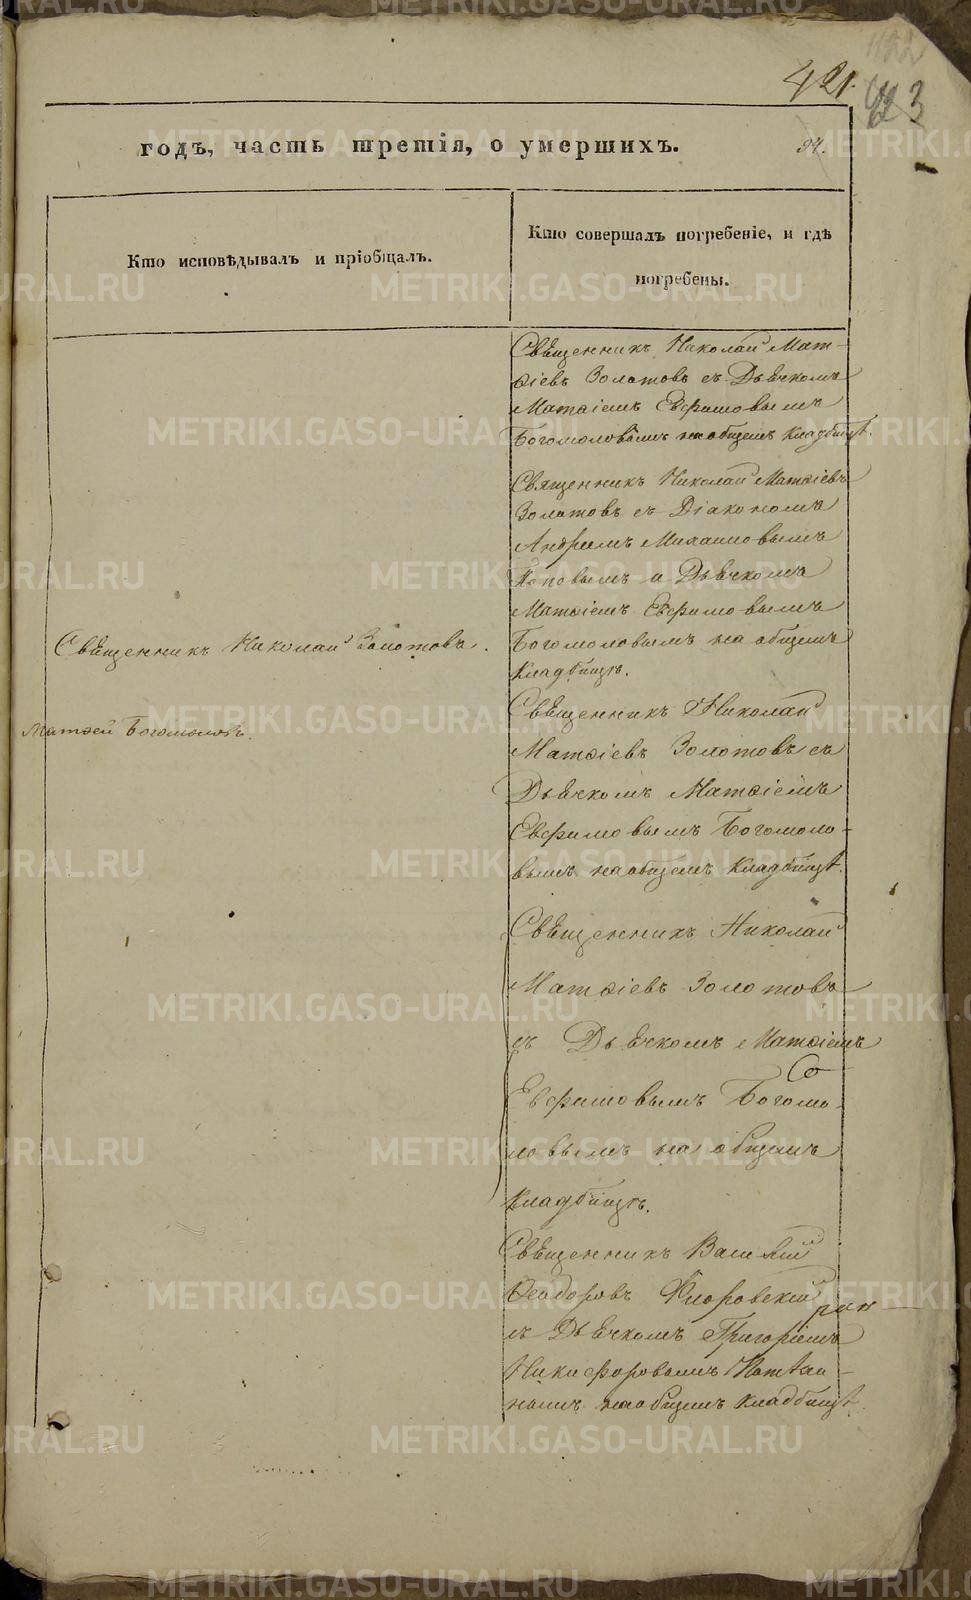 421.
423
годъ, часть третія, о умершихъ.
94.
Кто исповѣдывалъ и пріобщалъ.
Кто совершалъ погребеніе, и гдѣ
погребены.
Свѣщенникъ Николай Мат-
ѳіевъ Золотовъ съ Дьечкомъ
Матѳіемъ Евфимовымъ
Богомоловымъ на общемъ кладбищѣ.
Священникъ Николай Матѳіевъ
Золотовъ съ Діакономъ
Андреемъ Михаиловымъ
Поповымъ и Дьечкомъ
Матѳіемъ Евфимовымъ
Богомоловымъ на общемъ
кладбищѣ.
Свѣщенникъ Николай Золотовъ.
Матѳей Богомоловъ.
Свѣщенникъ Николай
Матѳіевъ Золотовъ съ
Дьечкомъ Матѳіемъ
Евфимовымъ Богомоло-
вымъ на общемъ кладбищѣ.
Свѣщенникъ Николай
Матѳіевъ Золотовъ
съ Дьечкомъ Матѳіемъ
Евфимовымъ Богомо-
ловымъ на общемъ
кладбищѣ.
Свѣщенникъ Василій
Ѳеодоровъ Флоровскій
съ Дьечкомъ Григоріемъ
Никифоровымъ
нымъ на общемъ кладбищѣ.
METRIKI.GASO-URAL.RU